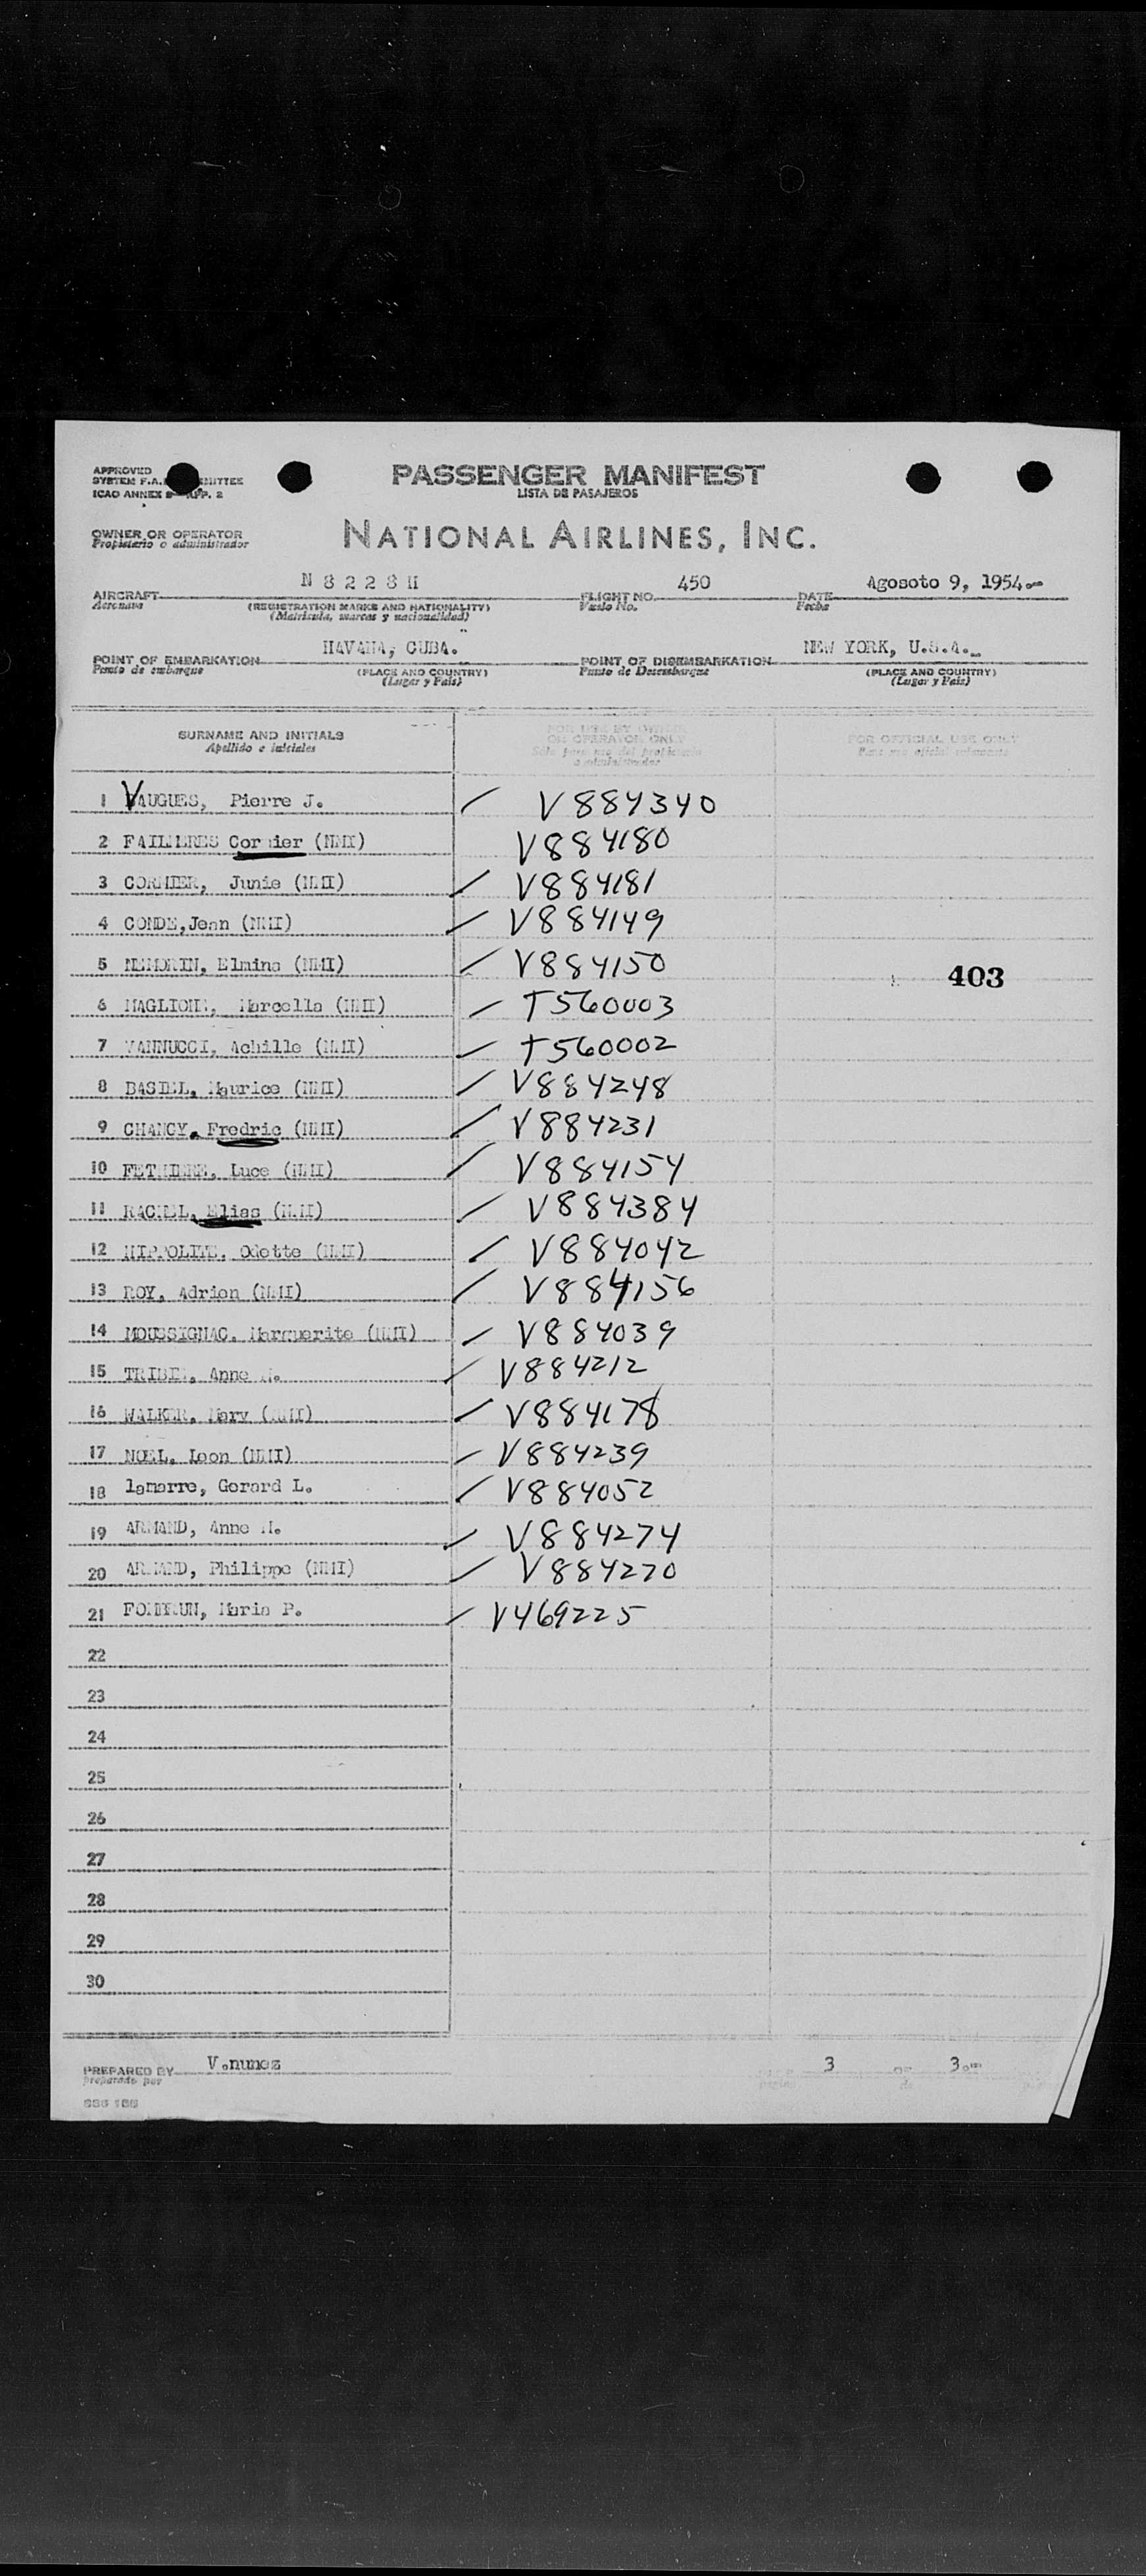 APPROVED
PASSENGER MANIFEST
SYSTEM F.A.
ICAO ANNEX APP. 2
LISTA DE PASAJEROS
OWNER OR OPERATOR
Propietario o administrador
NATIONAL AIRLINES, INC.
N 8 2 2 8 H 450 Agosoto 9, 1954.-
AIRCRAFT FLIGHT NO. DATE
Aeronave (REGISTRATION MARKS AND NATIONALITY) Vuelo No. Fecha
(Matricula, marcas y nacionalidad)
HAVANA, CUBA. NEW YORK, U.S.A.
POINT OF EMBARKATION POINT OF DISEMBARKATION
Punto de embarque (PLACE AND COUNTRY) Punto de Desembarque (PLACE AND COUNTRY)
(Lugar y Pais) (Lugar y Pais)
SURNAME AND INITIALS
Apellido e iniciales
FOR USE BY OWNER
OR OPERATOR ONLY
Sólo para uso del propietario
o administrador
FOR OFFICIAL USE ONLY
Para uso oficial solamente
1 VAUGUES, Pierre J. V884340
2 Cormier (NMI) V884180
3 CORMIER, Junie (NMI) V884181
4 CONDE,Jean (NMI) V884149
5 NEMORIN, Elmina (NMI) V884150
403
6 MAGLIONE, Marcella (NMI) T560003
7 VANNUCCI, Achille (NMI) T560002
8 Maurice (NMI) V884248
9 CHANCY, Fredric (NMI) V884231
10 FETHIERE, Luce (NMI) V884154
11 Elias (NMI) V884384
12 HIPPOLITE, Odette (NMI) V884042
13 ROY, Adrien (NMI) V884156
14 MOUSSIGNAC, Marguerite (NMI) V884039
15 Anne V884212
16 WALKER, Mary (NMI) V884178
17 NOEL, Leon (NMI) V884239
18 lamarre, Gerard L. V884052
19 ARMAND, Anne M. V884274
20 ARMAND, Philippe (NMI) V884270
21 Maria P. V469225
22
23
24
25
26
27
28
29
30
PREPARED BY V.nunez
preparado por
3 OF 3.-
de